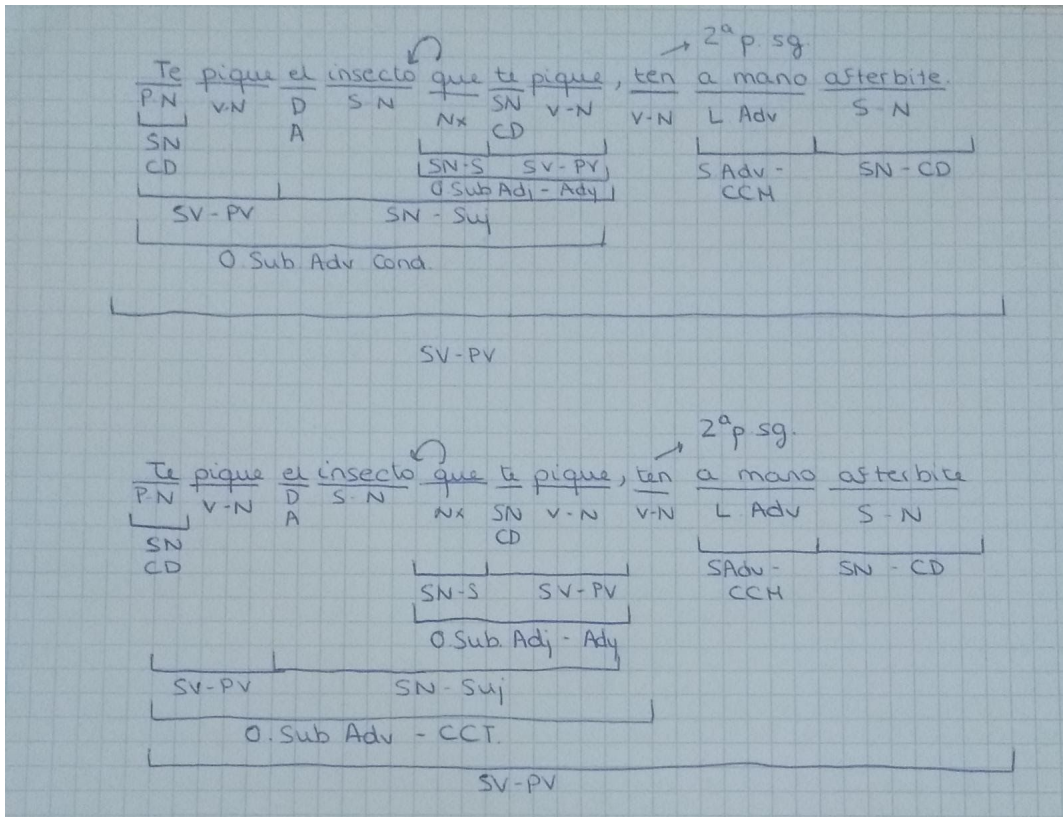 2ª p. sg.
Te pique el insecto que te pique, ten a mano afterbite.
P-N V-N D S-N Nx SN V-N V-N L Adv S-N
A CD
SN SN-S SV-PV SAdv- SN-CD
CD O Sub Adj - Ady CCM
SV-PV SN-Suj
O. Sub Adv Cond.
SV-PV
2ª p sg.
Te pique el insecto que te pique, ten a mano afterbite
P-N V-N D S-N Nx SN V-N V-N L. Adv S-N
A CD
SN SN-S SV-PV SAdv- SN-CD
CD CCM
O.Sub. Adj - Ady
SV-PV SN-Suj
O. Sub Adv - CCT.
SV-PV